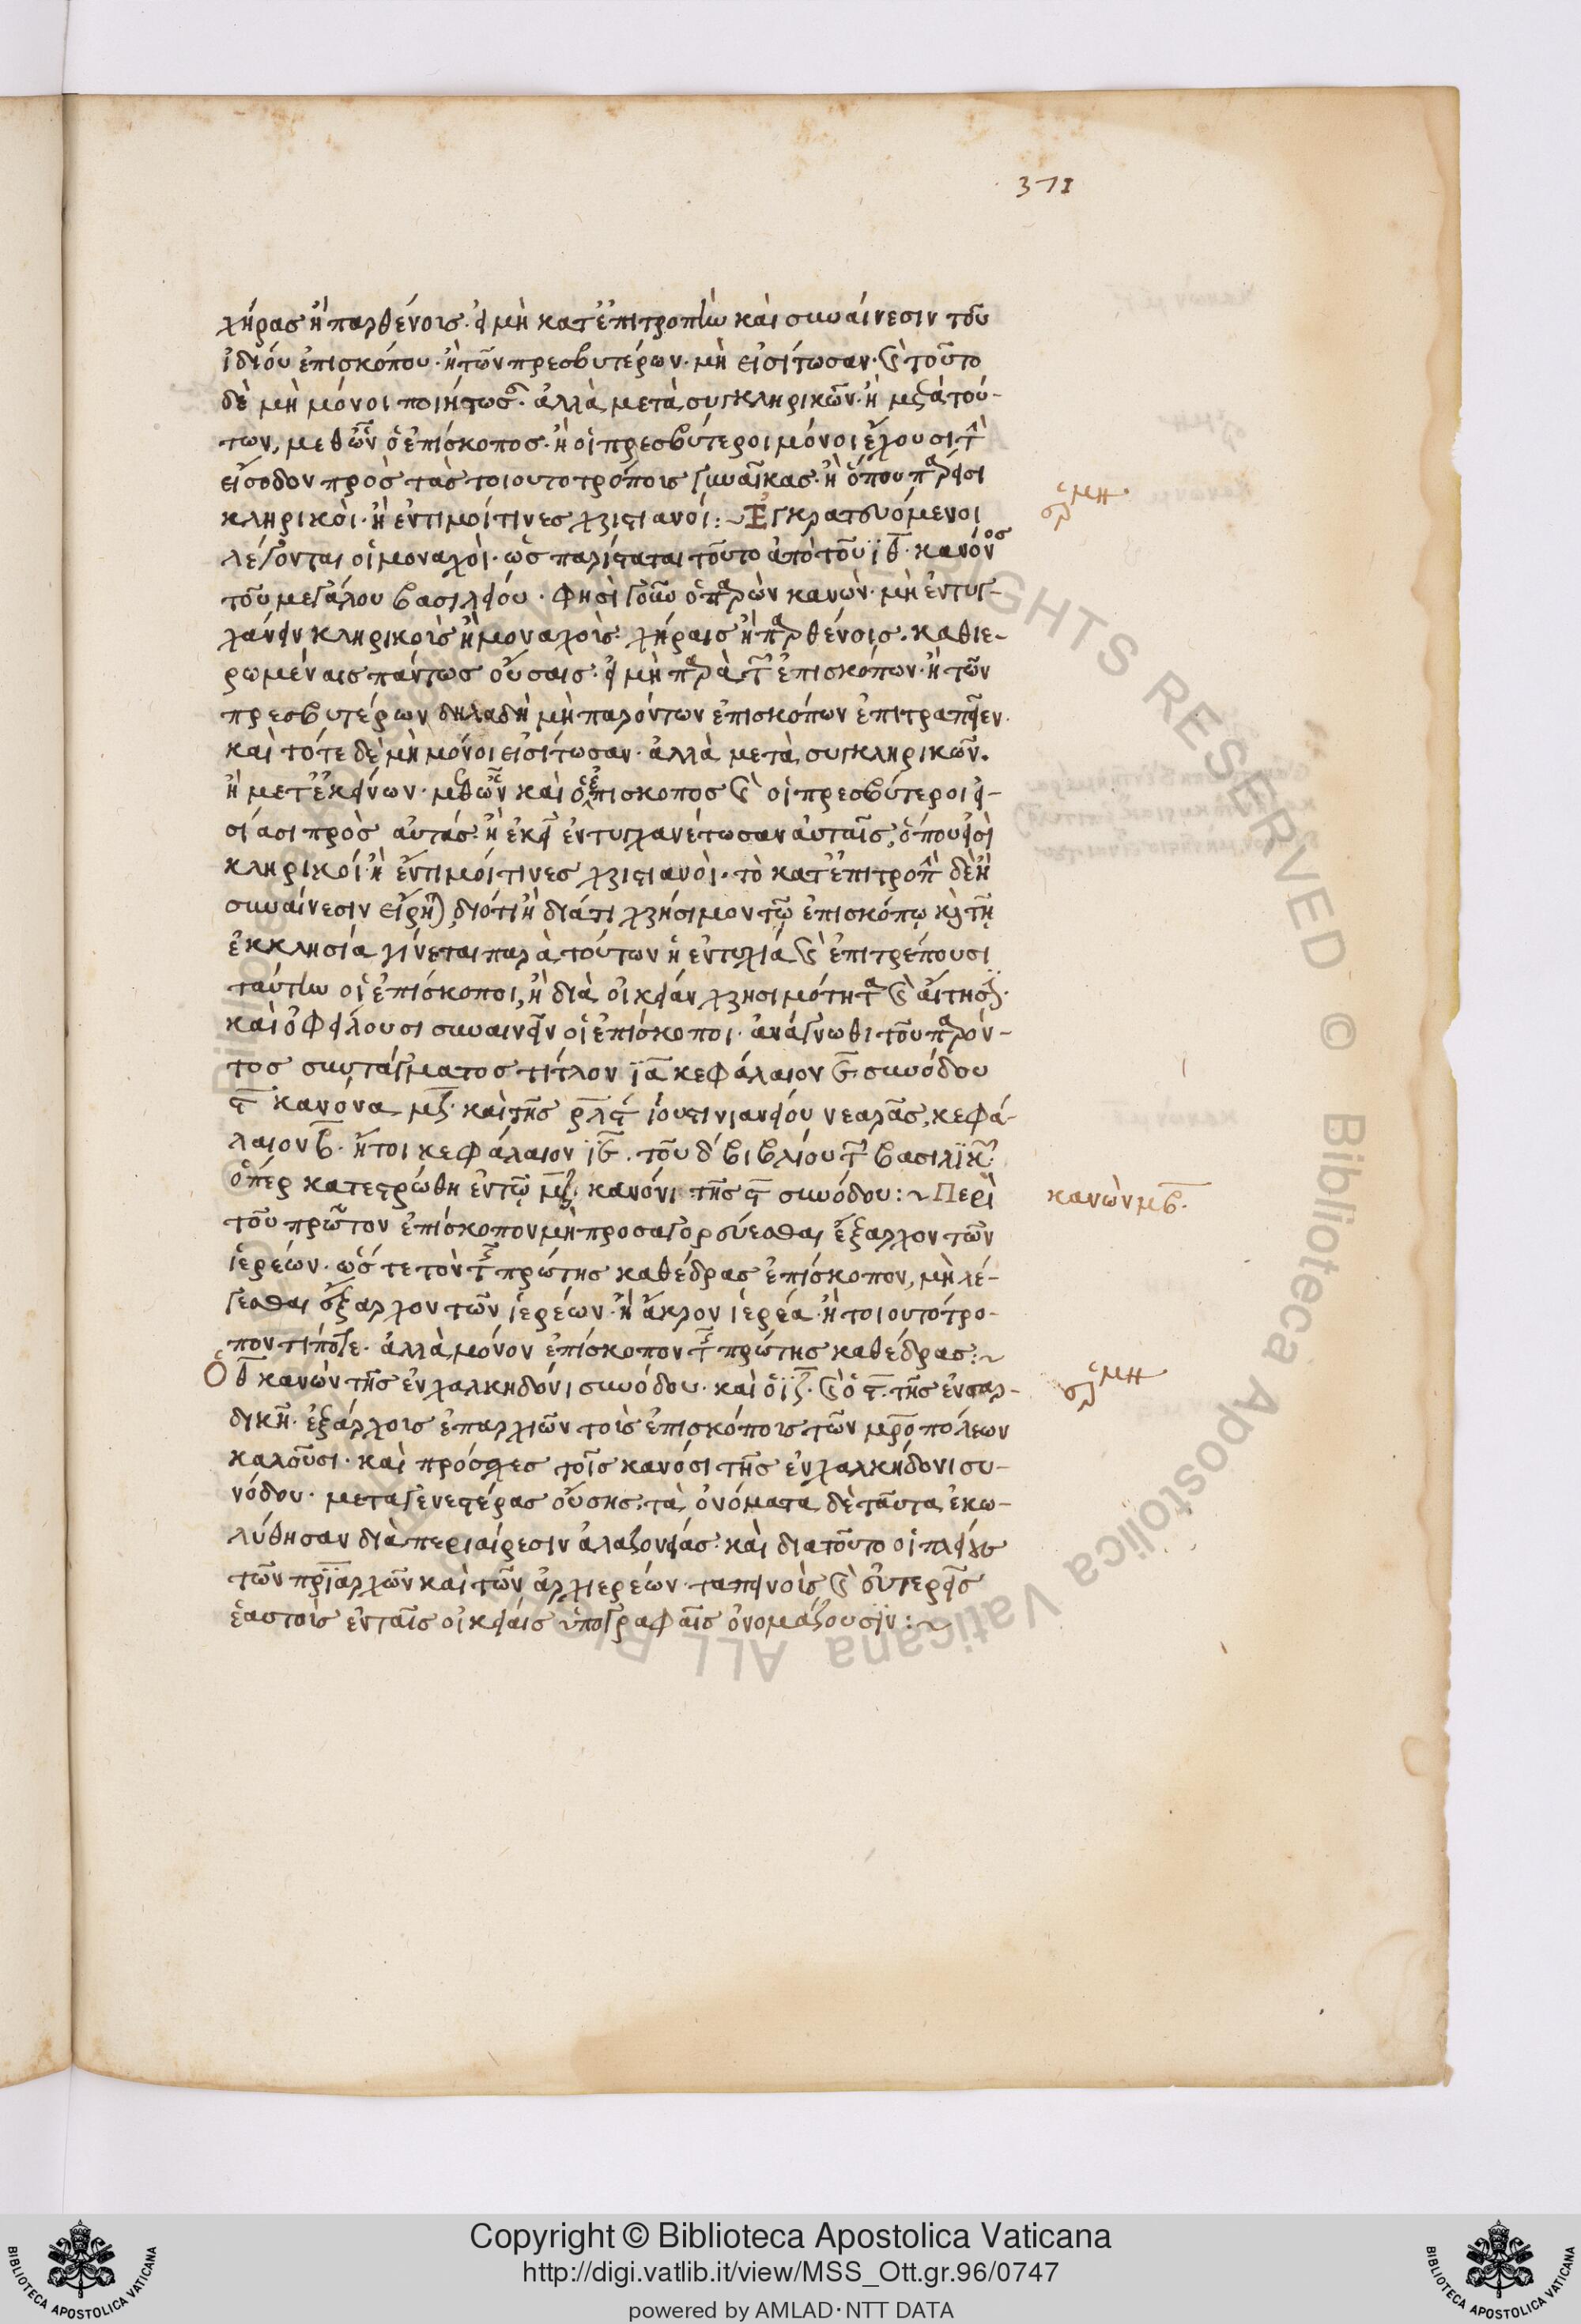 371
χήρας ἢ παρθένοις· εἰ μὴ κατ' ἐπιτροπὴν καὶ συναίνεσιν τοῦ
ἰδίου ἐπισκόπου· ἢ τῶν πρεσβυτέρων· μὴ εἰσίτωσαν· καὶ τοῦτο
δὲ μὴ μόνοι ποιήτωσαν· ἀλλὰ μετὰ συγκληρικῶν· ἢ μετὰ τού-
των, μεθ' ὧν ὁ ἐπίσκοπος· ἢ οἱ πρεσβύτεροι μόνοι ἔχουσι τὴν
εἴσοδον πρὸς τὰς τοιουτοτρόποις γυναῖκας· ἢ ὅπου πάρεισι
κληρικοὶ· ἢ ἐντιμοί τινες χριστιανοί:~ Ἐγκρατευόμενοι
λέγονται οἱ μοναχοὶ· ὡς παρίσταται τοῦτο ἀπὸ τοῦ ιθ· κανόνος
τοῦ μεγάλου βασιλείου· φησὶ γοῦν ὁ παρὼν κανὼν· μὴ ἐντυγ-
χάνειν κληρικοῖς ἢ μοναχοῖς· χήραις ἢ παρθένοις· καθιε-
ρωμέναις πάντως οὔσαις· εἰ μὴ παρὰ τῶν ἐπισκόπων· ἢ τῶν
πρεσβυτέρων δηλαδὴ μὴ παρόντων ἐπισκόπων ἐπιτραπεῖεν·
καὶ τότε δὲ μὴ μόνοι εἰσίτωσαν· ἀλλὰ μετὰ συγκληρικῶν.
ἢ μετ' ἐκείνων· μεθ' ὧν καὶ ὁ ἐπίσκοπος καὶ οἱ πρεσβύτεροι εἰ-
σίασι πρὸς αὐτάς· ἢ ἐκεῖ ἐντυγχανέτωσαν αὐταῖς, ὅπου εἰσὶ
κληρικοί· ἢ ἔντιμοί τινες χριστιανοὶ· τὸ κατ' ἐπιτροπὴν δὲ ἢ
συναίνεσιν εἴρηται διότι ἢ διά τι χρήσιμον τῷ ἐπισκόπῳ καὶ τῇ
ἐκκλησία γίνεται παρὰ τούτων ἡ ἐντυχία καὶ ἐπιτρέπουσι
ταύτην οἱ ἐπίσκοποι, ἢ διὰ οἰκείαν χρησιμότητα καὶ αἴτησιν·
καὶ ὀφείλουσι συναινεῖν οἱ ἐπίσκοποι· ἀνάγνωθι τοῦ παρόν-
τος συντάγματος τίτλον ια κεφάλαιον ϛ συνόδου
ϛ κανόνα μζ· καὶ τῆς ρλϛ ἰουστινιανείου νεαρᾶς, κεφά-
λαιον β· ἤτοι κεφάλαιον ιβ. τοῦ δ βιβλίου τῶν βασιλικῶν·
ὅπερ κατεστρώθη ἐν τῷ μζ· κανόνι τῆς ϛ συνόδου:~ Περὶ
τοῦ πρῶτον ἐπίσκοπον μὴ προσαγορεύεσθαι ἔξαρχον τῶν
ἱερέων· ὥστε τὸν τῆς πρώτης καθέδρας ἐπίσκοπον, μὴ λέ-
γεσθαι ἔξαρχον τῶν ἱερέων· ἢ ἄκρον ἱερέα· ἢ τοιουτότρο-
πον τίποτε· ἀλλὰ μόνον ἐπίσκοπον τῆς πρώτης καθέδρας:~
Ὁ θ κανὼν τῆς ἐν χαλκηδόνι συνόδου· καὶ ὁ ιζ· καὶ ὁ ϛ· τῆς ἐν σαρ-
δικῇ· ἐξάρχοις ἐπαρχιῶν τοὶς ἐπισκόποις τῶν μητροπόλεων
καλοῦσι· καὶ πρόσχες τοῖς κανόσι τῆς ἐν χαλκηδόνι συ-
νόδου· μεταγενεστέρας οὔσης· τὰ ὀνόματα δὲ ταῦτα ἐκω-
λύθησαν διὰ περιαίρεσιν ἀλαζονείας· καὶ διὰ τοῦτο οἱ πλείους
τῶν πατριαρχῶν καὶ τῶν ἀρχιερέων· ταπεινοὶς καὶ εὐτελεῖς
ἑαυτοὶς ἐν ταῖς οἰκείαις ὑπογραφαῖς ὀνομάζουσιν:~
κανὼν μβ.
Copyright © Biblioteca Apostolica Vaticana
http://digi.vatlib.it/view/MSS_Ott.gr.96/0747
powered by AMLAD·NTT DATA
BIBLIOTECA APOSTOLICA VATICANA
BIBLIOTECA APOSTOLICA VATICANA